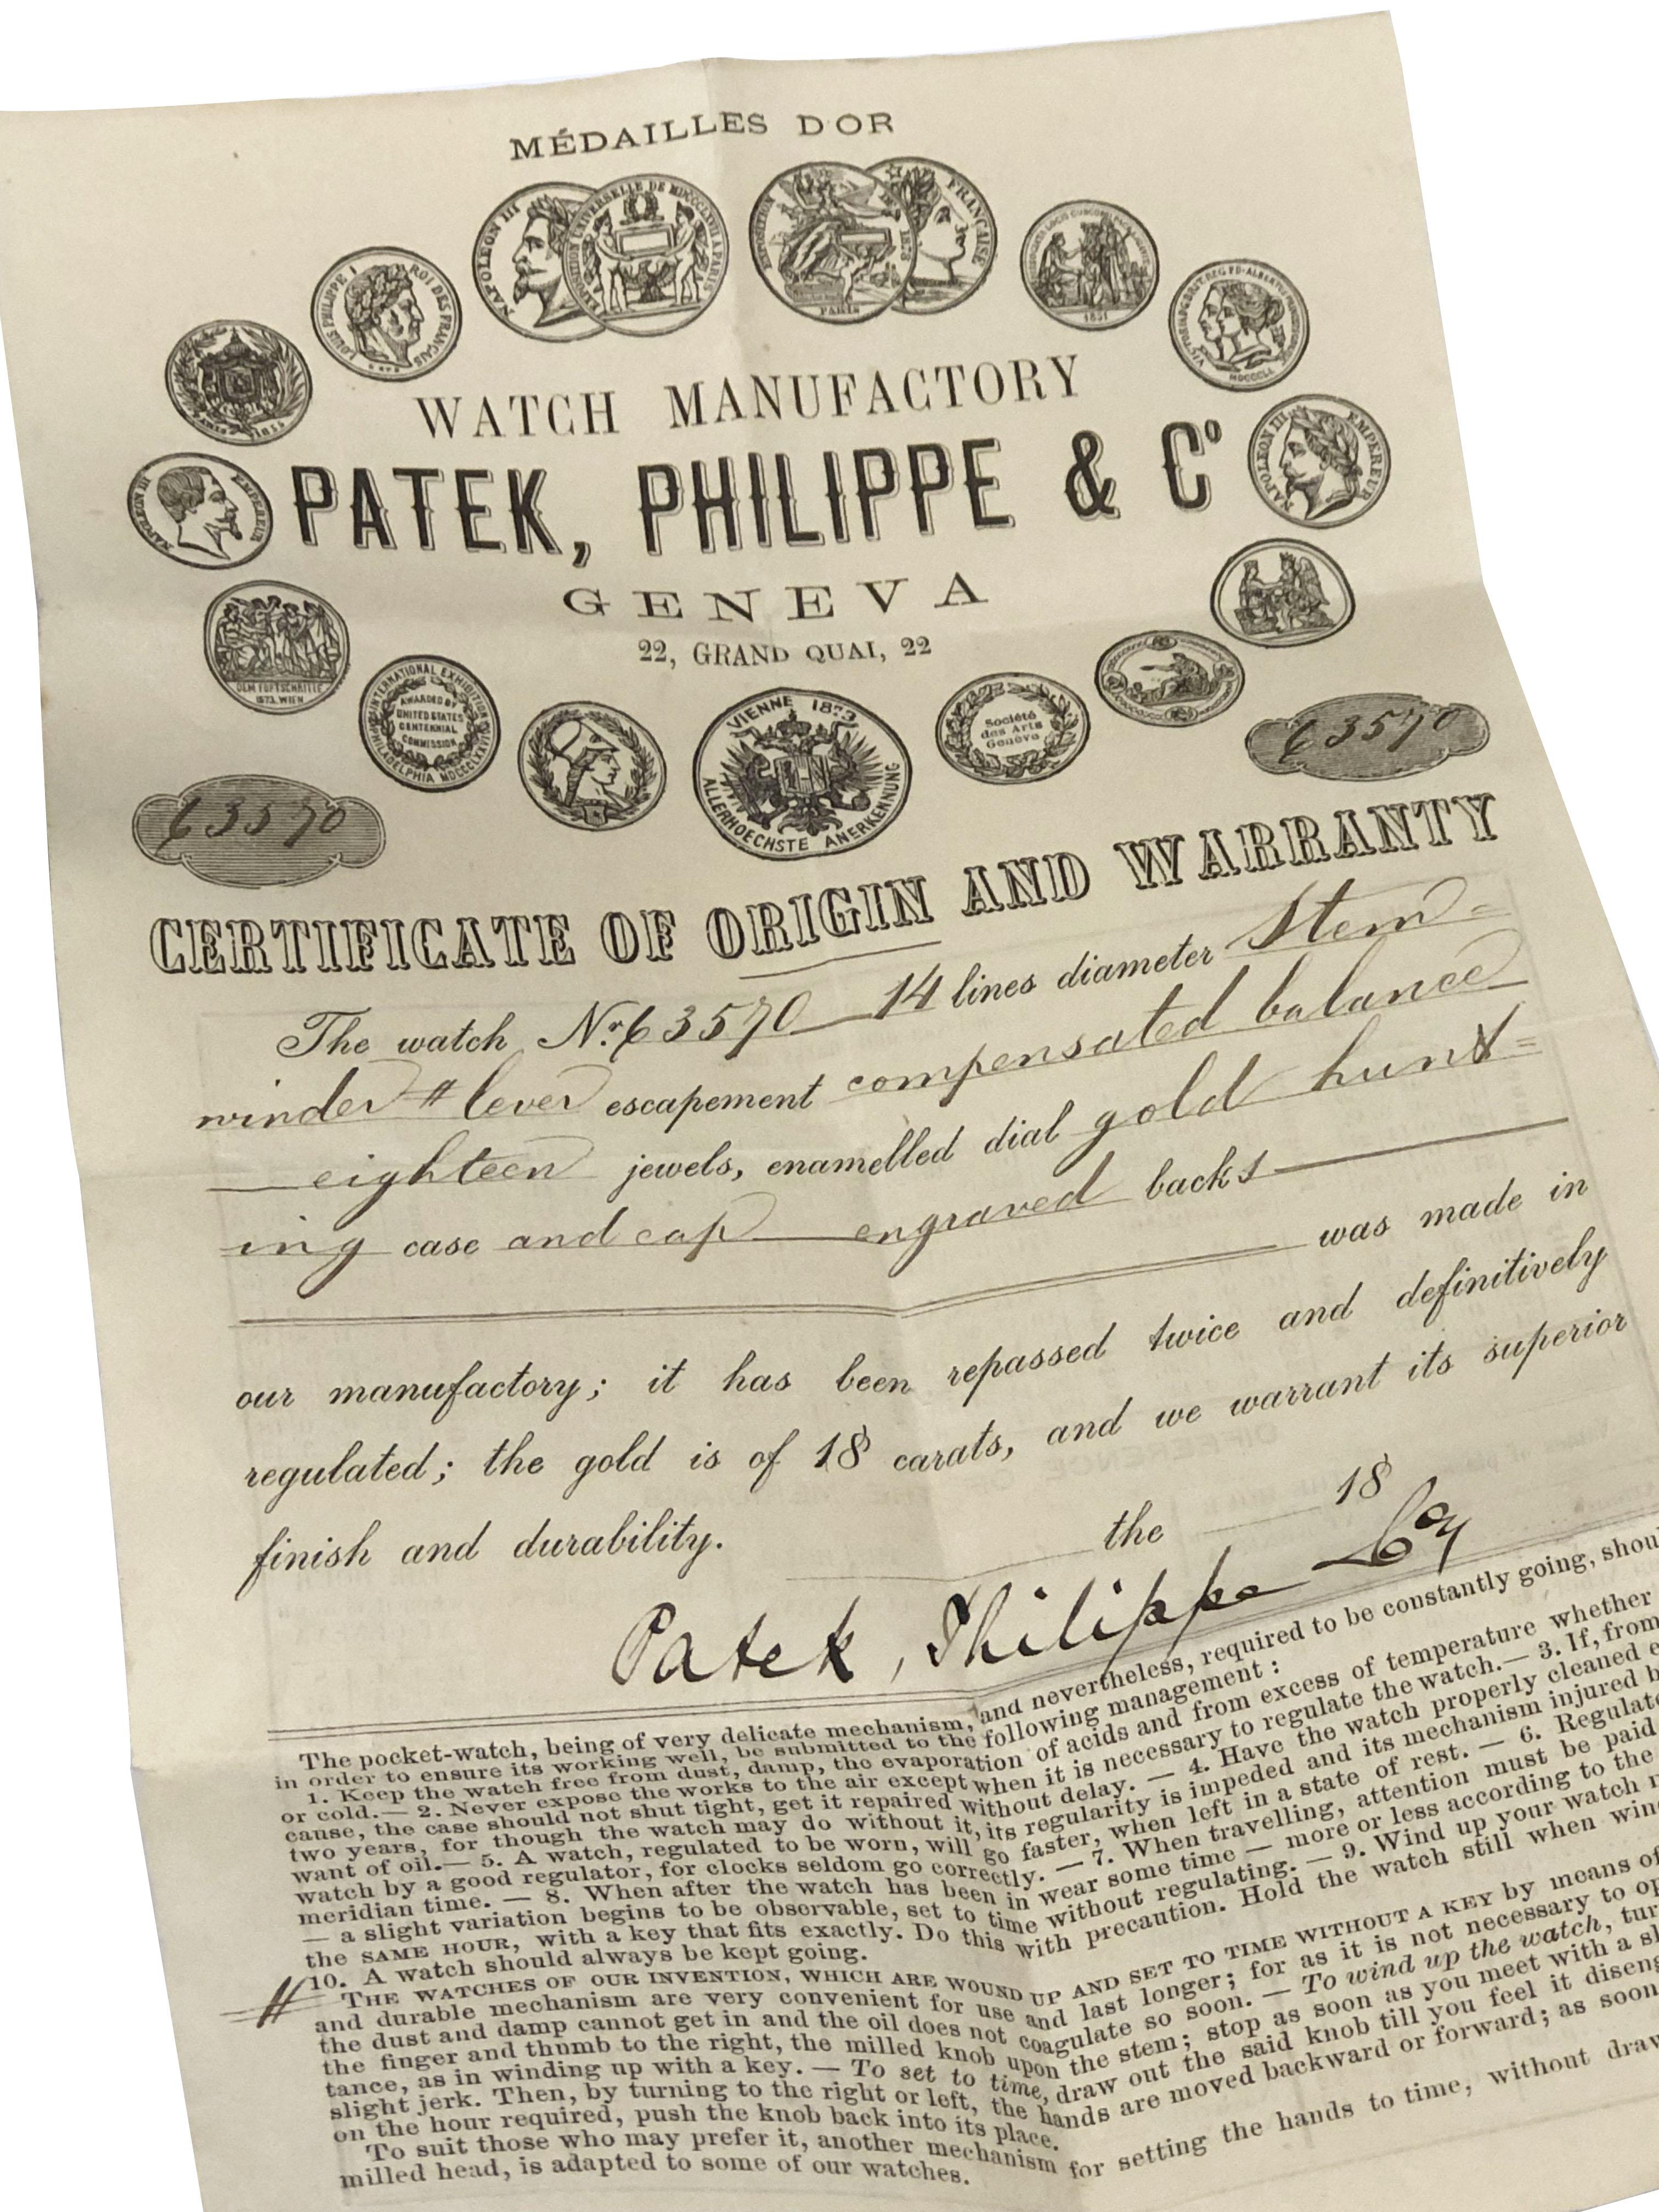 MÉDAILLES D'OR
NAPOLEON III
EXPOSITION UNIVERSELLE DE MDCCCLXVII A PARIS
EXPOSITION 1878
PARIS
FRANÇAISE
LOUIS PHILIPPE I ROI DES FRANÇAIS
1851
MDCCCLI
1855
WATCH MANUFACTORY
NAPOLEON III EMPEREUR
PATEK, PHILIPPE & Cº
NAPOLEON III EMPEREUR
GENEVA
22, GRAND QUAI, 22
DEM FORTSCHRITTE
1873. WIEN
INTERNATIONAL EXHIBITION
AWARDED BY
UNITED STATES
CENTENNIAL
COMMISSION
PHILADELPHIA MDCCCLXXVI
VIENNE 1873
ALLERHOECHSTE ANERKENNUNG
Société
des Arts
Genève
63570
63570
CERTIFICATE OF ORIGIN AND WARRANTY
The watch Nr. 63570 14 lines diameter Stem=
winder # lever escapement compensated balance
eighteen jewels, enamelled dial gold hunt=
ing case and cap engraved backs
was made in
our manufactory; it has been repassed twice and definitively
regulated; the gold is of 18 carats, and we warrant its superior
finish and durability.
the 18
Patek, Philippe & Co
The pocket-watch, being of very delicate mechanism, and nevertheless, required to be constantly going, shou
in order to ensure its working well, be submitted to the following management :
1. Keep the watch free from dust, damp, the evaporation of acids and from excess of temperature whether
or cold.— 2. Never expose the works to the air except when it is necessary to regulate the watch.— 3. If, from
cause, the case should not shut tight, get it repaired without delay. — 4. Have the watch properly cleaned e
two years, for though the watch may do without it, its regularity is impeded and its mechanism injured b
want of oil.— 5. A watch, regulated to be worn, will go faster, when left in a state of rest. — 6. Regulate
watch by a good regulator, for clocks seldom go correctly. — 7. When travelling, attention must be paid
meridian time. — 8. When after the watch has been in wear some time — more or less according to the
— a slight variation begins to be observable, set to time without regulating. — 9. Wind up your watch
the SAME HOUR, with a key that fits exactly. Do this with precaution. Hold the watch still when win
10. A watch should always be kept going.
# THE WATCHES OF OUR INVENTION, WHICH ARE WOUND UP AND SET TO TIME WITHOUT A KEY by means of
and durable mechanism are very convenient for use and last longer; for as it is not necessary to op
the dust and damp cannot get in and the oil does not coagulate so soon. — To wind up the watch, tur
the finger and thumb to the right, the milled knob upon the stem; stop as soon as you meet with a sl
tance, as in winding up with a key. — To set to time, draw out the said knob till you feel it diseng
slight jerk. Then, by turning to the right or left, the hands are moved backward or forward; as soon
on the hour required, push the knob back into its place.
To suit those who may prefer it, another mechanism for setting the hands to time, without draw
milled head, is adapted to some of our watches.